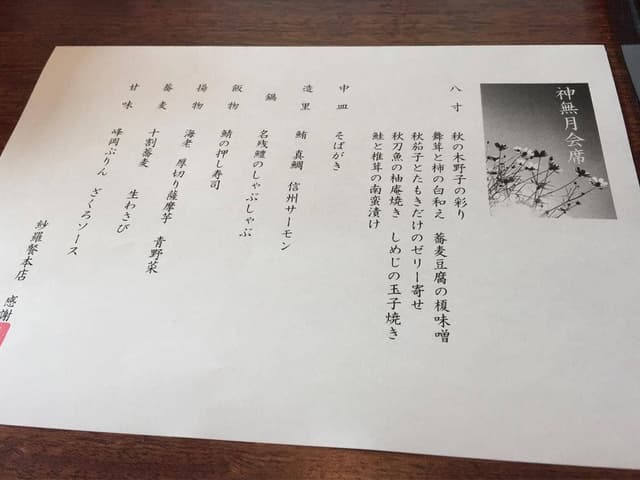 神無月会席
八寸 秋の木野子の彩り
舞茸と柿の白和え 蕎麦豆腐の榎味噌
秋茄子とたもきだけのゼリー寄せ
秋刀魚の柚庵焼き しめじの玉子焼き
鮭と椎茸の南蛮漬け
中皿 そばがき
造里 鮪 真鯛 信州サーモン
鍋 名残鱧のしゃぶしゃぶ
飯物 鯖の押し寿司
揚物 海老 厚切り薩摩芋 青野菜
蕎麦 十割蕎麦 生わさび
甘味 峰岡ぷりん ざくろソース
紗羅餐本店 感謝